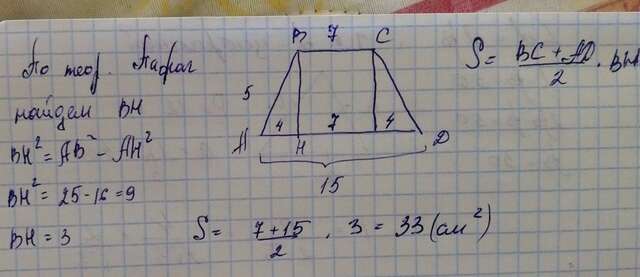 По теор. Пифаг
найдем BH
BH² = AB² - AH²
BH² = 25 - 16 = 9
BH = 3
B 7 C
5
4 7 4
A H D
15
S = BC + AD / 2 · BH
S = 7 + 15 / 2 · 3 = 33 (см²)